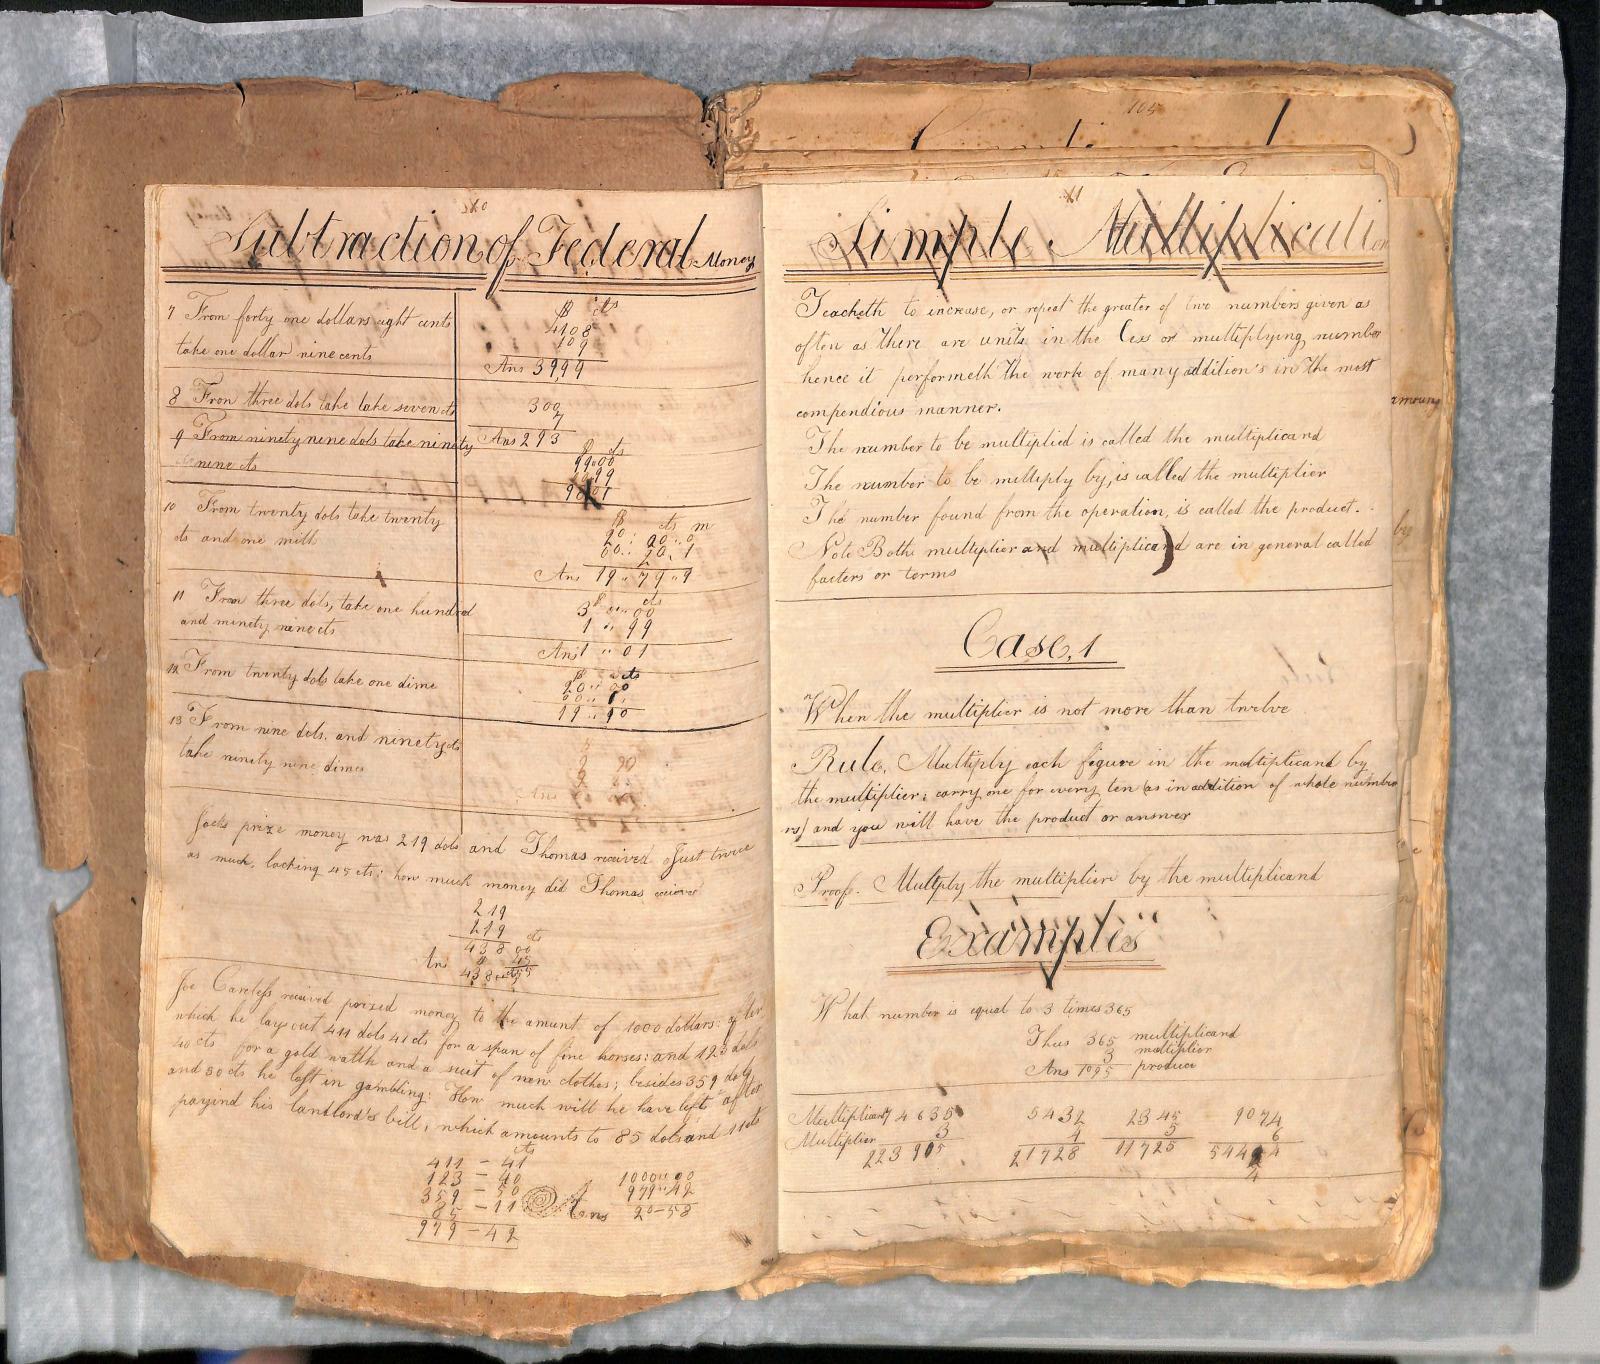 Subtraction of Federal Money
7 From forty one dollars eight cents
take one dollar nine cents
$ cts
4108
109
Ans 3999
8 From three dols take take seven cts
300
7
Ans 293
9 From ninety nine dols take ninety
nine cts
$ cts
99.00
99
9801
10 From twenty dols take twenty
cts and one mill
$ cts m
20 .. 00 .. 0
00 .. 20 .. 1
Ans 19 .. 79 .. 9
11 From three dols, take one hundred
and ninety nine cts
$ cts
3 .. 00
1 .. 99
Ans 1 .. 01
12 From twenty dols take one dime
$ cts
20 .. 00
19 .. 90
13 From nine dols. and ninety cts
take ninety nine dimes
9 90
Ans
Jacks prize money was 219 dols and Thomas received Just twice
as much, lacking 45 cts; how much money did Thomas
219
219 cts
438 00
45
Ans 438
Joe Careless received money to the amunt of 1000 dollars: after
which he lay out 411 dols 41 cts for a span of fine horses: and 123 dols
40 cts for a gold watch and a suit of new clothes; besides 359 dols
and 50 cts he lost in gambling: How much will he have left after
payind his landlord's bill; which amounts to 85 dols and 11 cts
cts
411 - 41
123 - 40
359 - 50
85 - 11
979 - 42
1000 .. 00
979 .. 42
Ans 20 - 58
104
Simple Multiplication
Teacheth to increase, or repeat the greater of two numbers given as
often as there are units in the less or multiplying number
hence it performeth the work of many addition's in the most
compendious manner.
The number to be multiplied is called the multiplicand
The number to be multiply by, is called the multiplier
The number found from the operation, is called the product.
Note Both multiplier and multiplicand are in general called
facters or terms
Case, 1
When the multiplier is not more than twelve
Rule. Multiply each figure in the multiplicand by
the multiplier; carry one for every ten (as in addition of whole number
rs) and you will have the product or answer
Proof. Multply the multiplier by the multiplicand
Examples
What number is equal to 3 times 365
Thus 365 multiplicand
3 multiplier
Ans 1095 produce
Multiplicand 74635 5432 2345 9074
Multiplier 3 4 5 6
223905 21728 11725 54424
4
amoung
by